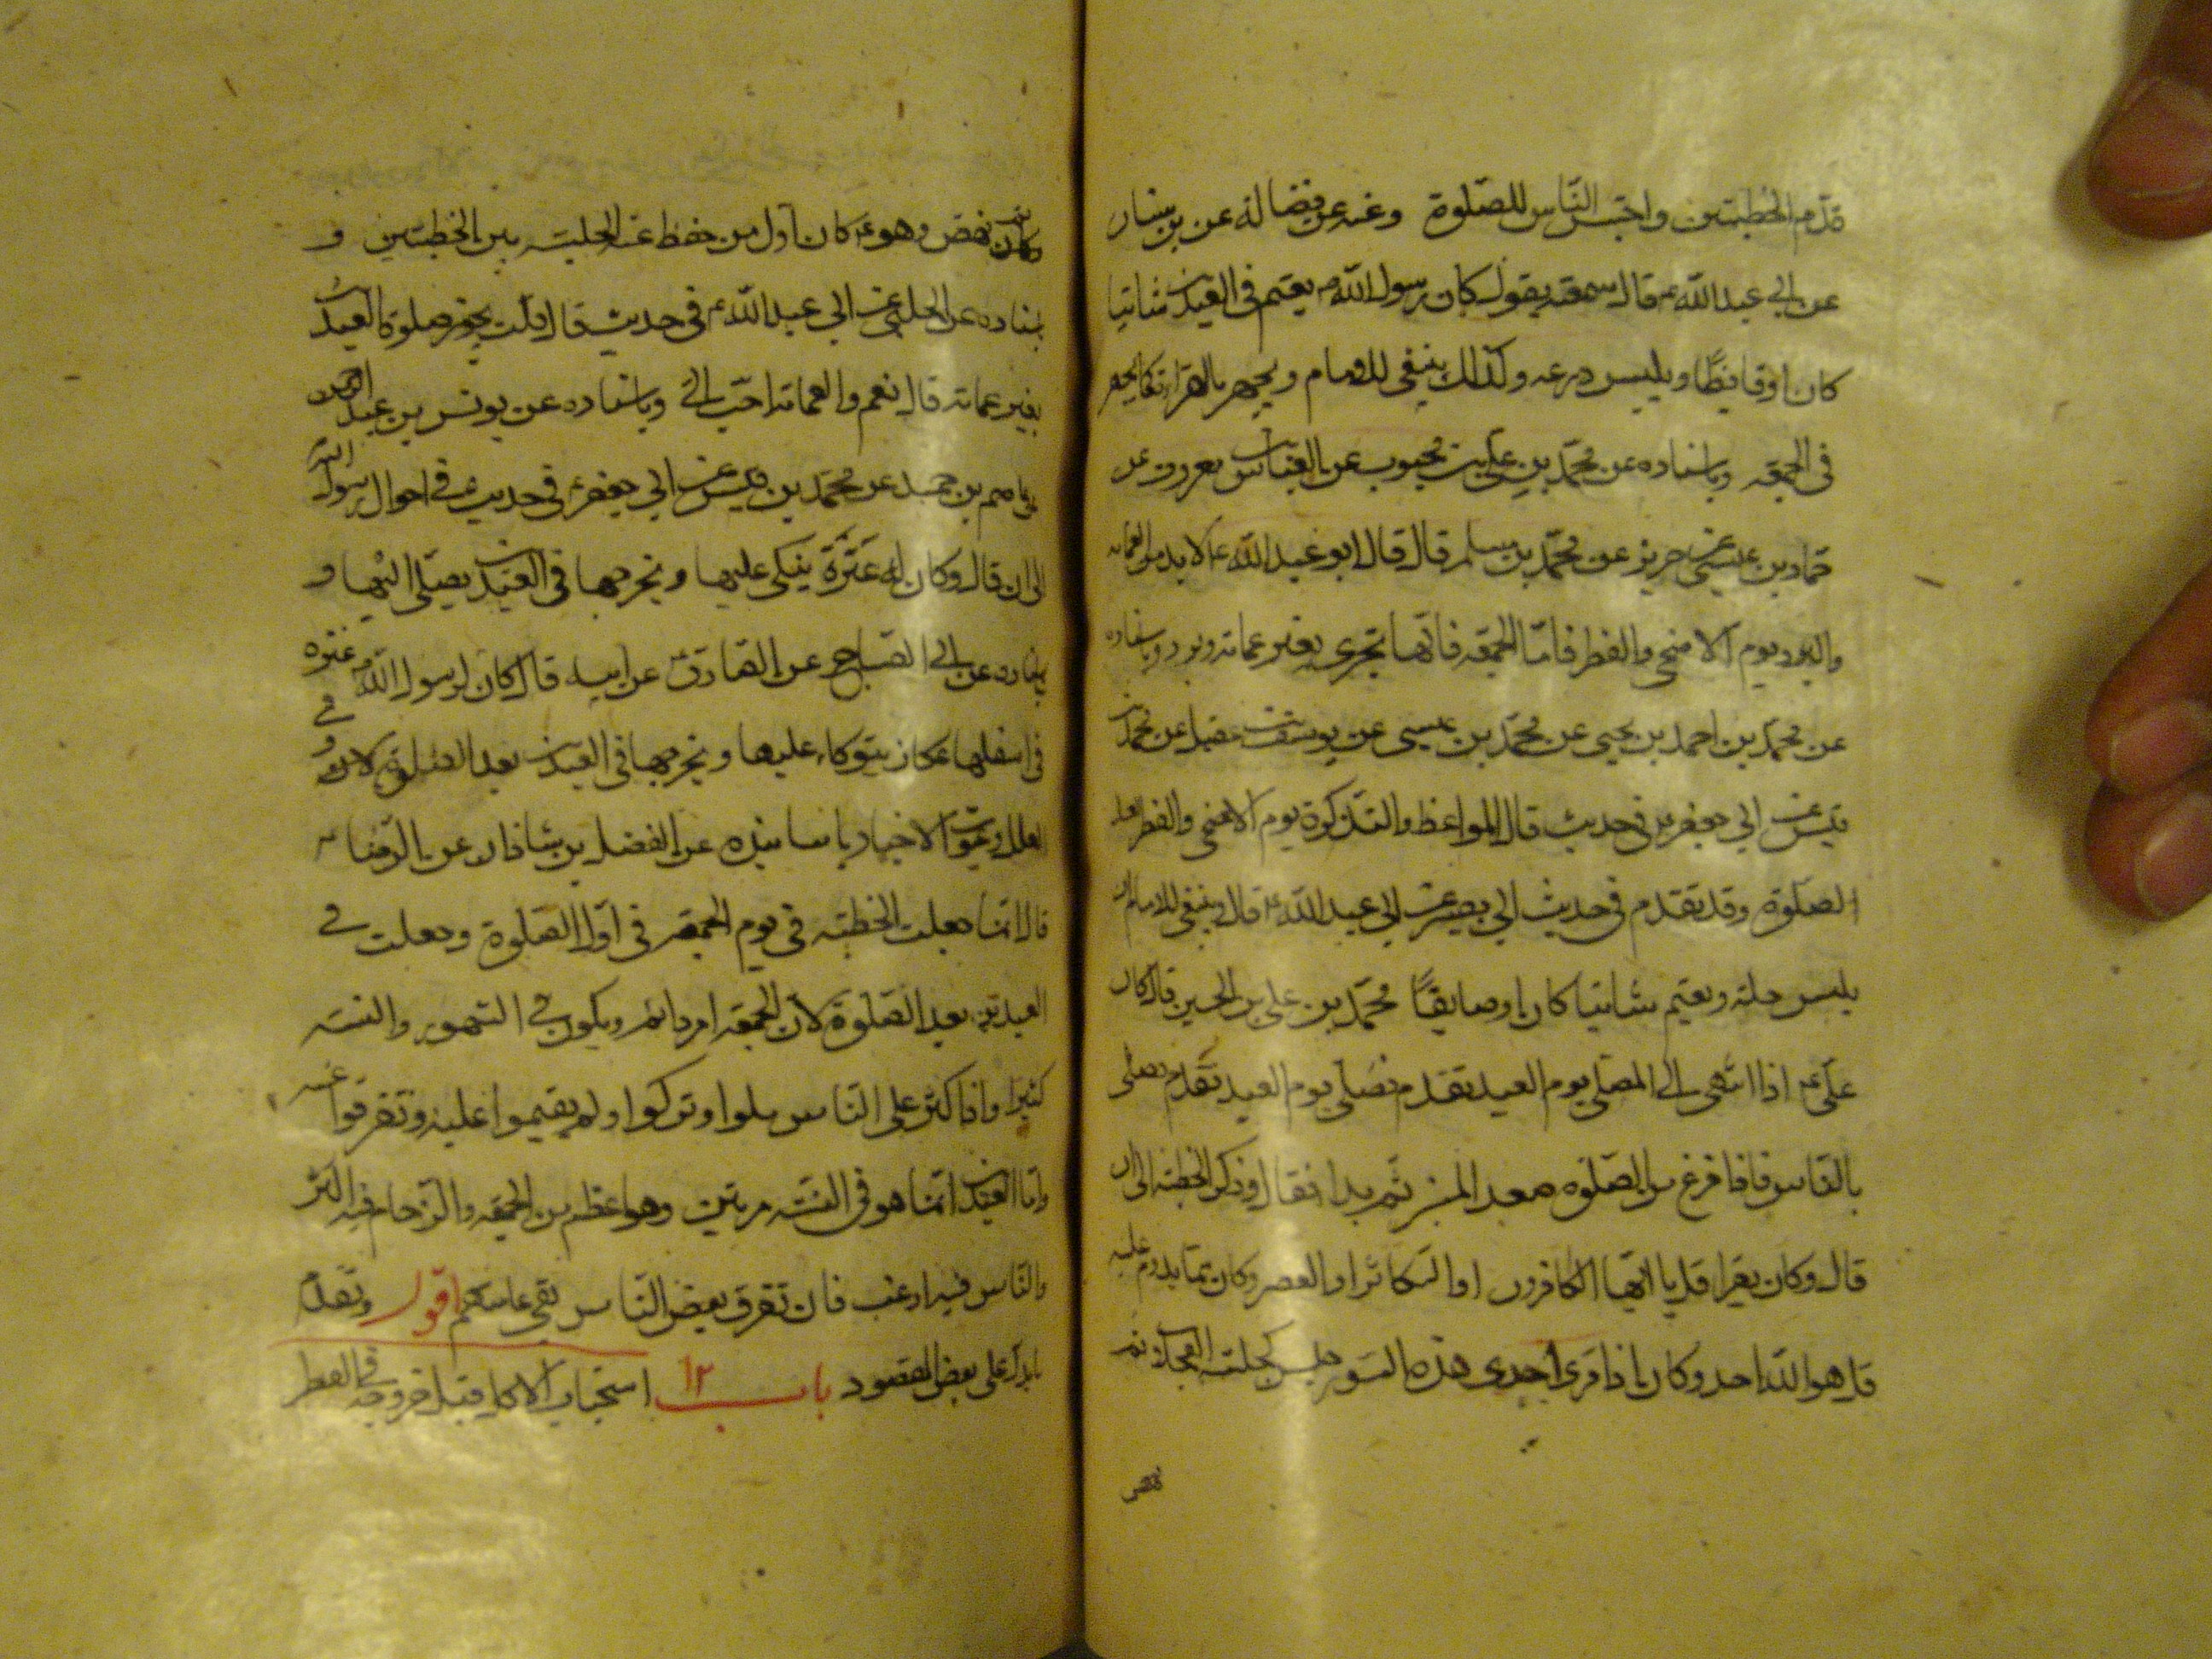 قدّم الخطبتين واحتبس النّاس للصّلوة وعنه عن فضالة عن بن سنان
عن ابي عبد الله ع قال سمعته يقول كان رسول الله ص يعتم فى العيدين شاتيا
كان او قايظًا ويلبس درعه وكذلك ينبغى للامام ويجهر بالقراءة كما يجهر
فى الجمعة وباسناده عن محمّد بن على بن محبوب عن العباس بن معروف عن
حماد بن عيسى عن حريز عن محمّد بن مسلم قال قال ابو عبد الله ع لا بد من العمامة
والبرد يوم الاضحى والفطر فامّا الجمعة فانّها تجزى بغير عمامة وبرد وباسناده
عن محمّد بن احمد بن يحيى عن محمّد بن عيسى عن يوسف بن عقيل عن محمد بن
قيس عن ابي جعفر ع فى حديث قال المواعظ والتذكرة يوم الاضحى والفطر بعد
الصّلوة وقد تقدم فى حديث ابي بصير عن ابي عبد الله ع قال ينبغى للامام ان
يلبس حلة ويعتم شاتيا كان او صايفًا محمّد بن على بن الحسين قال كان
على ع اذا انتهى الى المصلى يوم العيد تقدم فصلى يوم العيد تقدم فصلى
بالناس فاذا فرغ من الصّلوة صعد المنبر ثم بدا فقال وذكر الخطبة الى ان
قال وكان يقرا قل يا ايها الكافرون او التكاثر او العصر وكان مما يدوم عليه
قل هو الله احد وكان اذا قرى احدى هذه السور جلس كجلسة العجلان ثم
نهض
ثم نهض وهو ع كان اول من حفظ عنه الجلسة بين الخطبتين و
باسناده عن الحلبي عن ابي عبد الله ع فى حديث قال قلت يجوز صلوة العيدين
بغير عمامة قال نعم والعمامة احبّ الىّ وباسناده عن يونس بن عبد الرحمن
عن عاصم بن حميد عن محمّد بن قيس عن ابي جعفر ع فى حديث فى احوال رسول الله
الى ان قال وكان له عَنَزَة يتكى عليها ويخرجها فى العيدين يصلى اليها و
باسناده عن ابي الصباح عن الصادق عن ابيه قال كان لرسول الله ص عنزه
فى اسفلها عكاز يتوكاء عليها ويخرجها فى العيدين
العلل وعيون الاخبار باسانيده عن الفضل بن شاذان عن الرضا ع
قال انما جعلت الخطبة فى يوم الجمعة فى اول الصّلوة وجعلت فى
العيدين بعد الصّلوة لان الجمعة امر دائم ويكون فى الشهور والسنة
كثيرا واذا كثر على الناس ملوا وتركوا ولم يقيموا عليه وتفرقوا عنه
وامّا العيدين انما هو فى السّنة مرتين وهو اعظم من الجمعة والزحام فيه اكثر
والنّاس فيه ارغب فان تفرق بعض النّاس بقى عامتهم اقول وتقدّم
ما يدل على بعض المقصود باب ١٢ استحباب الاكل قبل خروجه فى الفطر